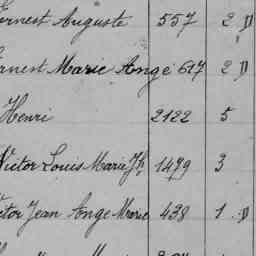 Ernest Auguste 557 2 D
Ernest Marie Ange 617 2 D
Henri 2122 5
Victor Louis Marie Jh 1479 3
Victor Jean Ange Marie 438 1 D